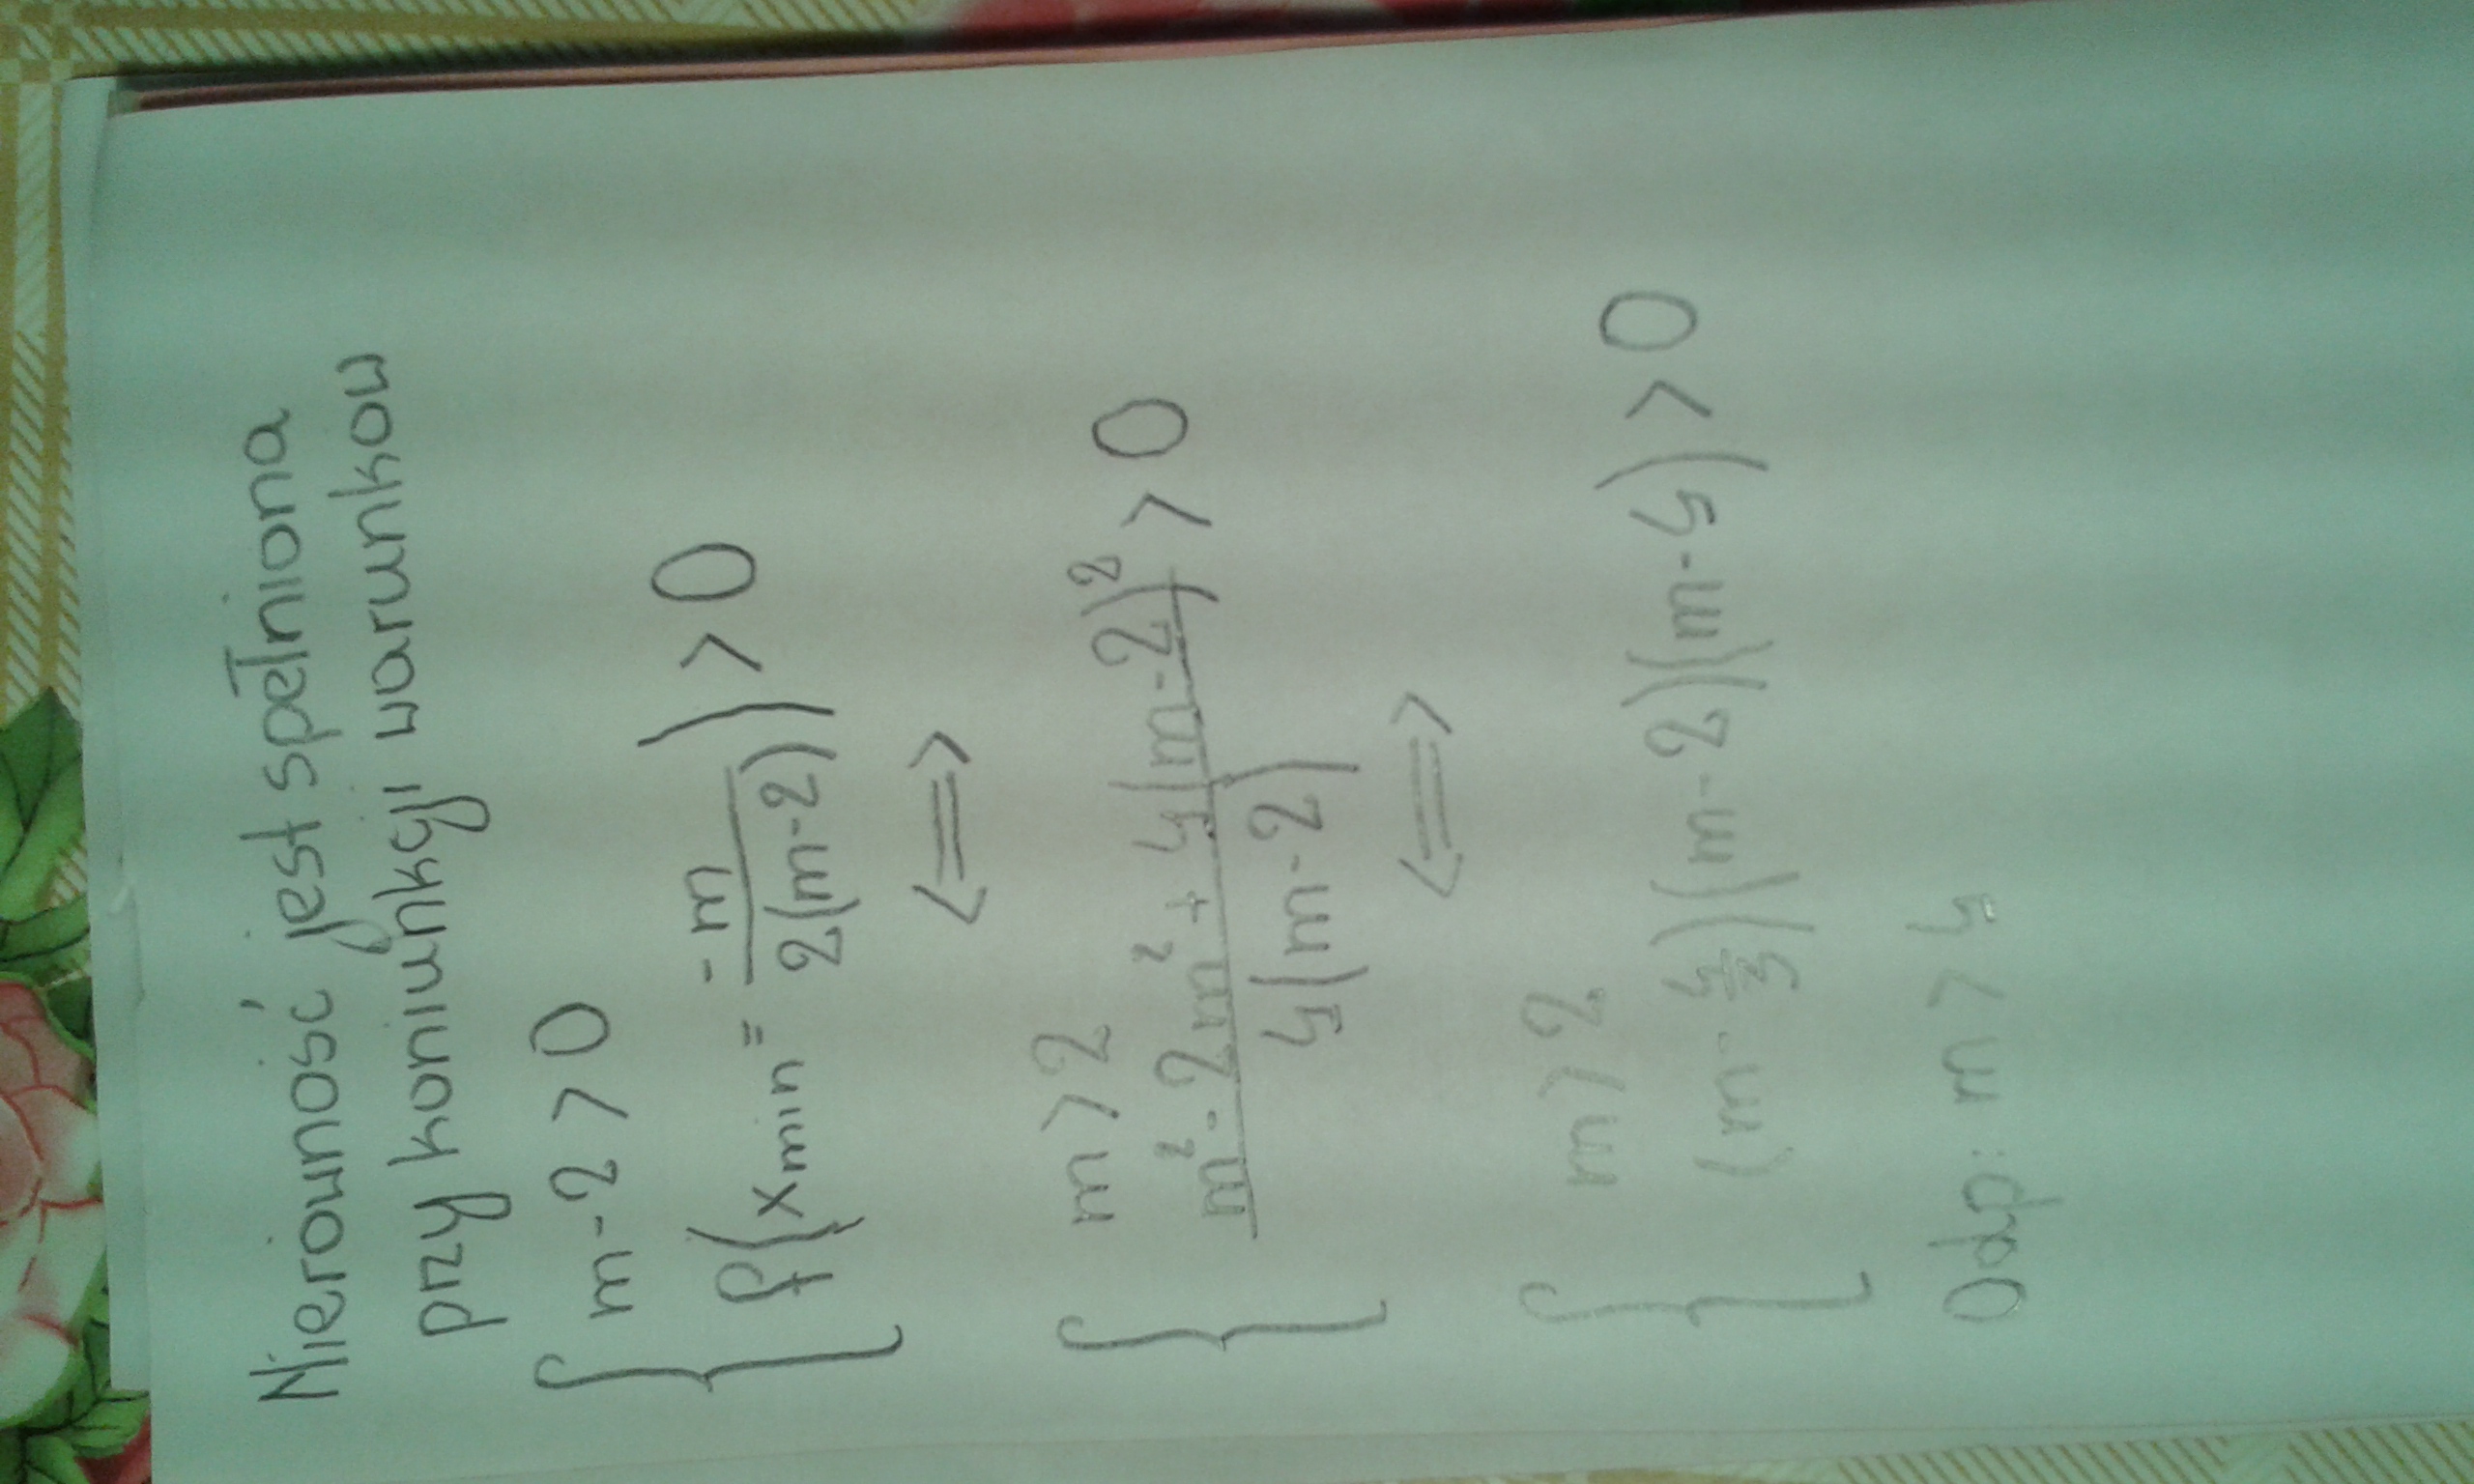 Nierówność jest spełniona
przy koniunkcji warunkow
{ m-2>0
f(xmin = -m/2(m-2))>0
<=>
{ m>2
m²-2m²+4(m-2)²/4(m-2) >0
<=>
{ m>2
(m-4/3)(m-2)(m-4)>0
Odp: m>4